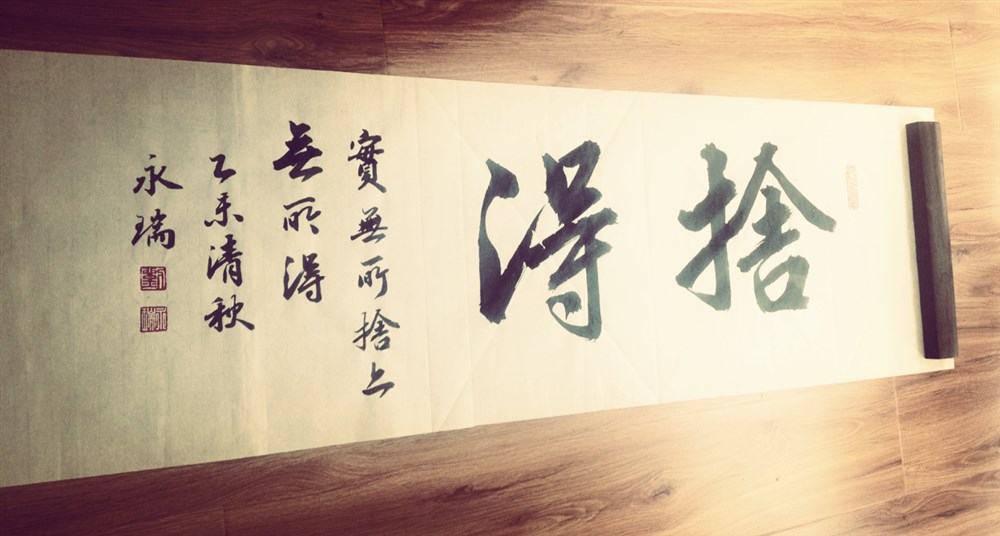 捨得
實無所捨亦
無所得
乙未清秋
永瑞